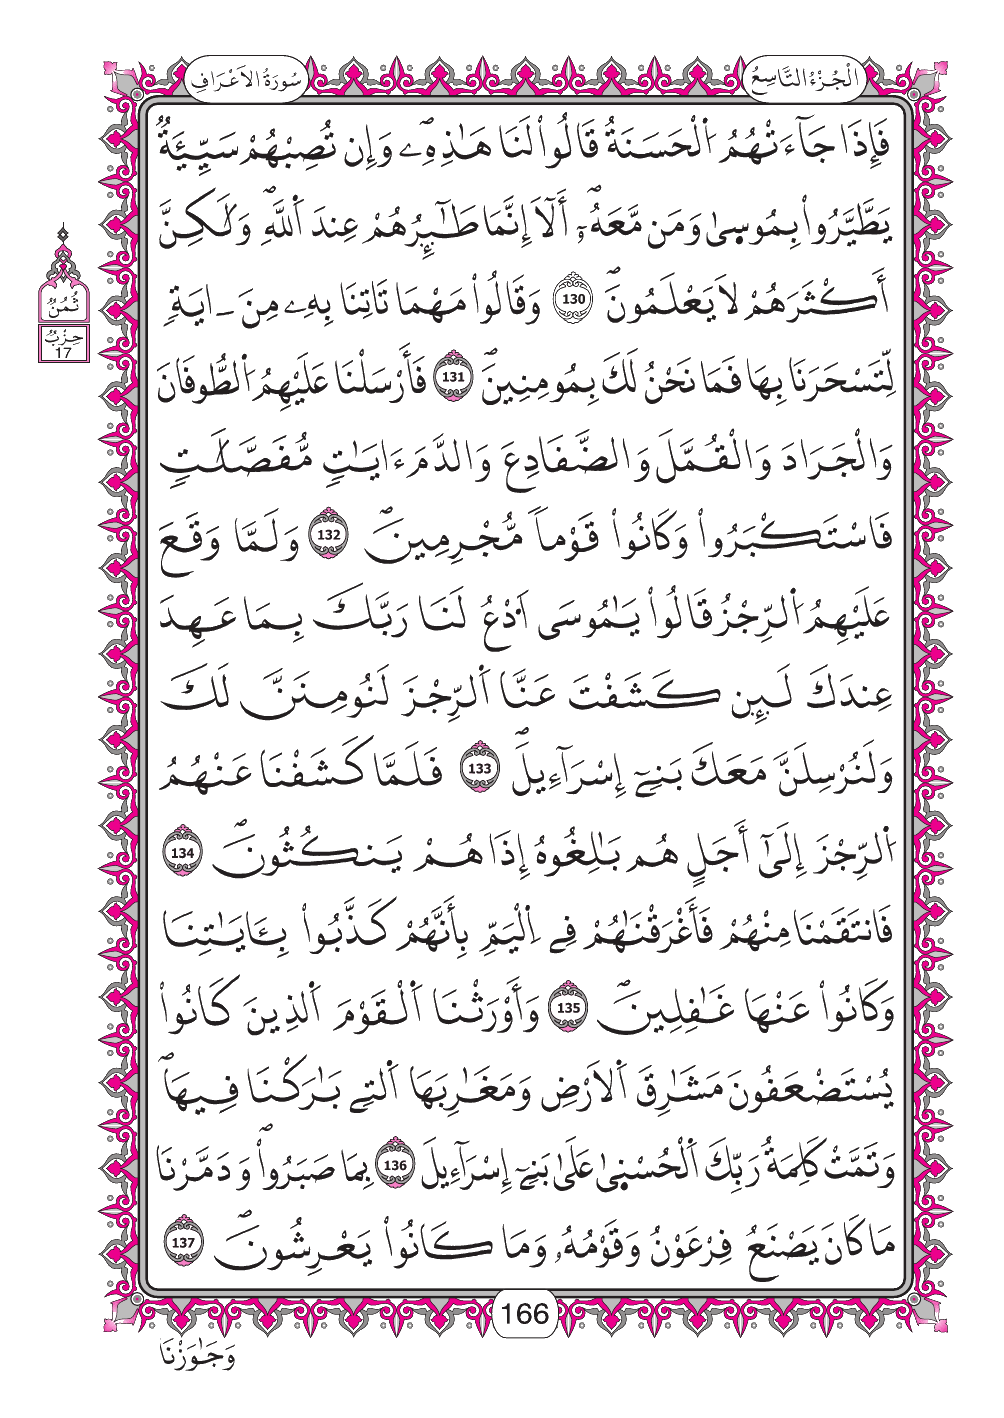 اَلْجُزْءُ التَّاسِعُ
سُورَةُ الَاعْرَافِ
فَإِذَا جَآءَتْهُمُ اُ۬لْحَسَنَةُ قَالُواْ لَنَا هَٰذِهِۦۖ وَإِن تُصِبْهُمْ سَيِّئَةٞ
يَطَّيَّرُواْ بِمُوس۪يٰ وَمَن مَّعَهُۥٓۖ أَلَآ إِنَّمَا طَٰٓئِرُهُمْ عِندَ اَ۬للَّهِۖ وَلَٰكِنَّ
أَكْثَرَهُمْ لَا يَعْلَمُونَۖ 130 وَقَالُواْ مَهْمَا تَاتِنَا بِهِۦ مِنَ ـ ايَةٖ
لِّتَسْحَرَنَا بِهَا فَمَا نَحْنُ لَكَ بِمُومِنِينَۖ 131 فَأَرْسَلْنَا عَلَيْهِمُ اُ۬لطُّوفَانَ
وَالْجَرَادَ وَالْقُمَّلَ وَالضَّفَادِعَ وَالدَّمَ ءَايَٰتٖ مُّفَصَّلَٰتٖ
فَاسْتَكْبَرُواْ وَكَانُواْ قَوْماٗ مُّجْرِمِينَۖ 132 وَلَمَّا وَقَعَ
عَلَيْهِمُ اُ۬لرِّجْزُ قَالُواْ يَٰمُوسَى اَ۟دْعُ لَنَا رَبَّكَ بِمَا عَهِدَ
عِندَكَ لَئِن كَشَفْتَ عَنَّا اَ۬لرِّجْزَ لَنُومِنَنَّ لَكَ
وَلَنُرْسِلَنَّ مَعَكَ بَنِےٓ إِسْرَآءِيلَۖ 133 فَلَمَّا كَشَفْنَا عَنْهُمُ
اُ۬لرِّجْزَ إِلَىٰٓ أَجَلٍ هُم بَٰلِغُوهُ إِذَا هُمْ يَنكُثُونَۖ 134
فَانتَقَمْنَا مِنْهُمْ فَأَغْرَقْنَٰهُمْ فِے اِ۬لْيَمِّ بِأَنَّهُمْ كَذَّبُواْ بِـَٔايَٰتِنَا
وَكَانُواْ عَنْهَا غَٰفِلِينَۖ 135 وَأَوْرَثْنَا اَ۬لْقَوْمَ اَ۬لذِينَ كَانُواْ
يُسْتَضْعَفُونَ مَشَٰرِقَ اَ۬لَارْضِ وَمَغَٰرِبَهَا اَ۬لتِے بَٰرَكْنَا فِيهَاۖ
وَتَمَّتْ كَلِمَةُ رَبِّكَ اَ۬لْحُسْن۪يٰ عَلَىٰ بَنِےٓ إِسْرَآءِيلَ 136 بِمَا صَبَرُواْۖ وَدَمَّرْنَا
مَا كَانَ يَصْنَعُ فِرْعَوْنُ وَقَوْمُهُۥ وَمَا كَانُواْ يَعْرِشُونَۖ 137
ثُمُنٌ
حِزْبٌ
17
166
وَجَٰوَزْنَا